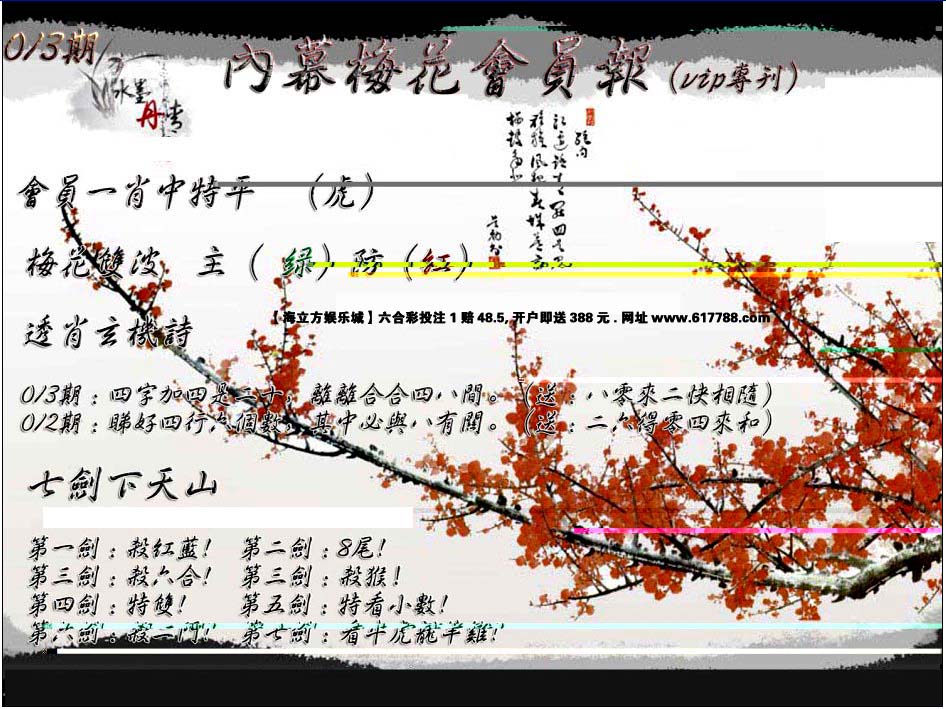 013期
內幕梅花會員報(vip專刊)
水墨
丹情
會員一肖中特平 （虎）
梅花雙波 主（綠）防（紅）
【海立方娱乐城】六合彩投注1赔48.5, 开户即送388元 . 网址 www.617788.com
透肖玄機詩
013期：四字加四是二十，離離合合四八間。（送：八零來二快相隨）
012期：睇好四行六個數，其中必與八有關。（送：二六得零四來和）
七劍下天山
第一劍：殺紅藍! 第二劍：8尾!
第三劍：殺六合! 第三劍：殺猴!
第四劍：特雙! 第五劍：特看小數!
第六劍：殺二門! 第七劍：看牛虎龍羊雞!